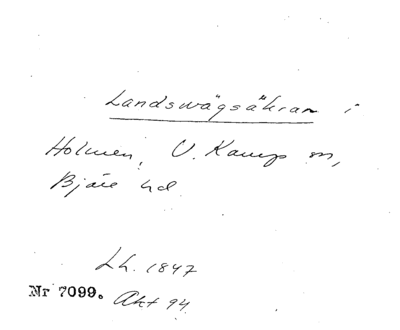 Landsvägsåkran i
Holmen, V. Karup sn,
Bjäre hd.
Lh. 1847
Nr 7099. Akt 94.